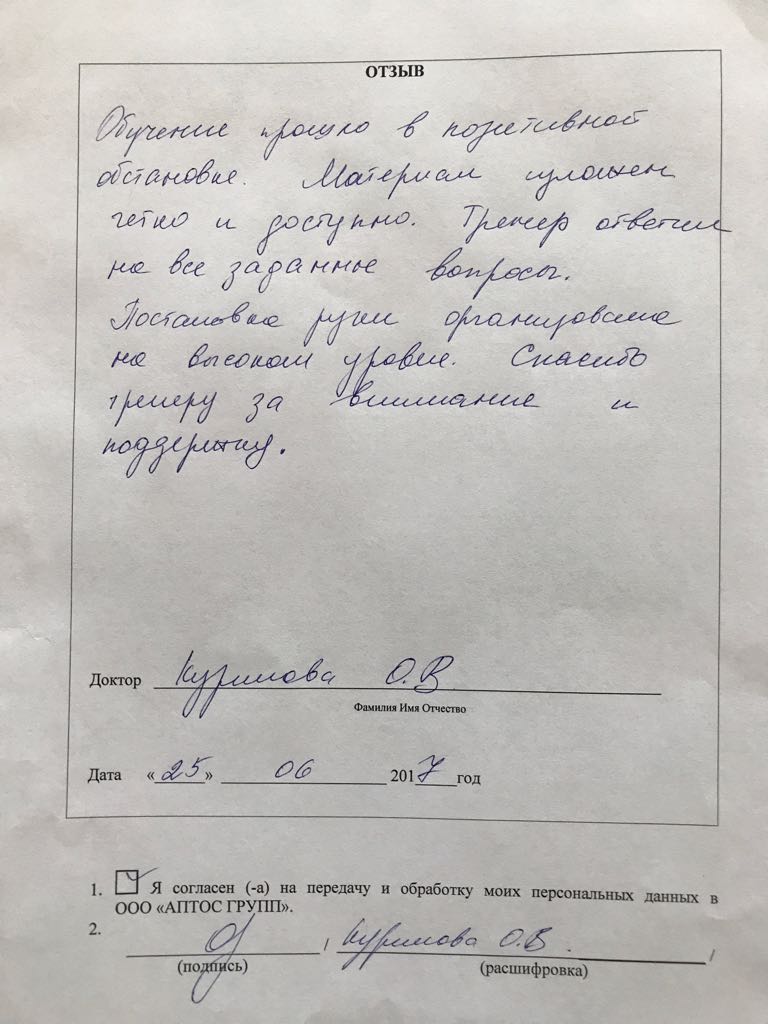 ОТЗЫВ
Обучение прошло в позитивной
обстановке. Материал изложен
четко и доступно. Тренер ответил
на все заданные вопросы.
Постановка руки организована
на высоком уровне. Спасибо
тренеру за внимание и
поддержку.
Доктор Куримова О.В.
Фамилия Имя Отчество
Дата «25» 06 2017 год
1. Я согласен (-а) на передачу и обработку моих персональных данных в
ООО «АПТОС ГРУПП».
2. , Куримова О.В.
(подпись) (расшифровка)